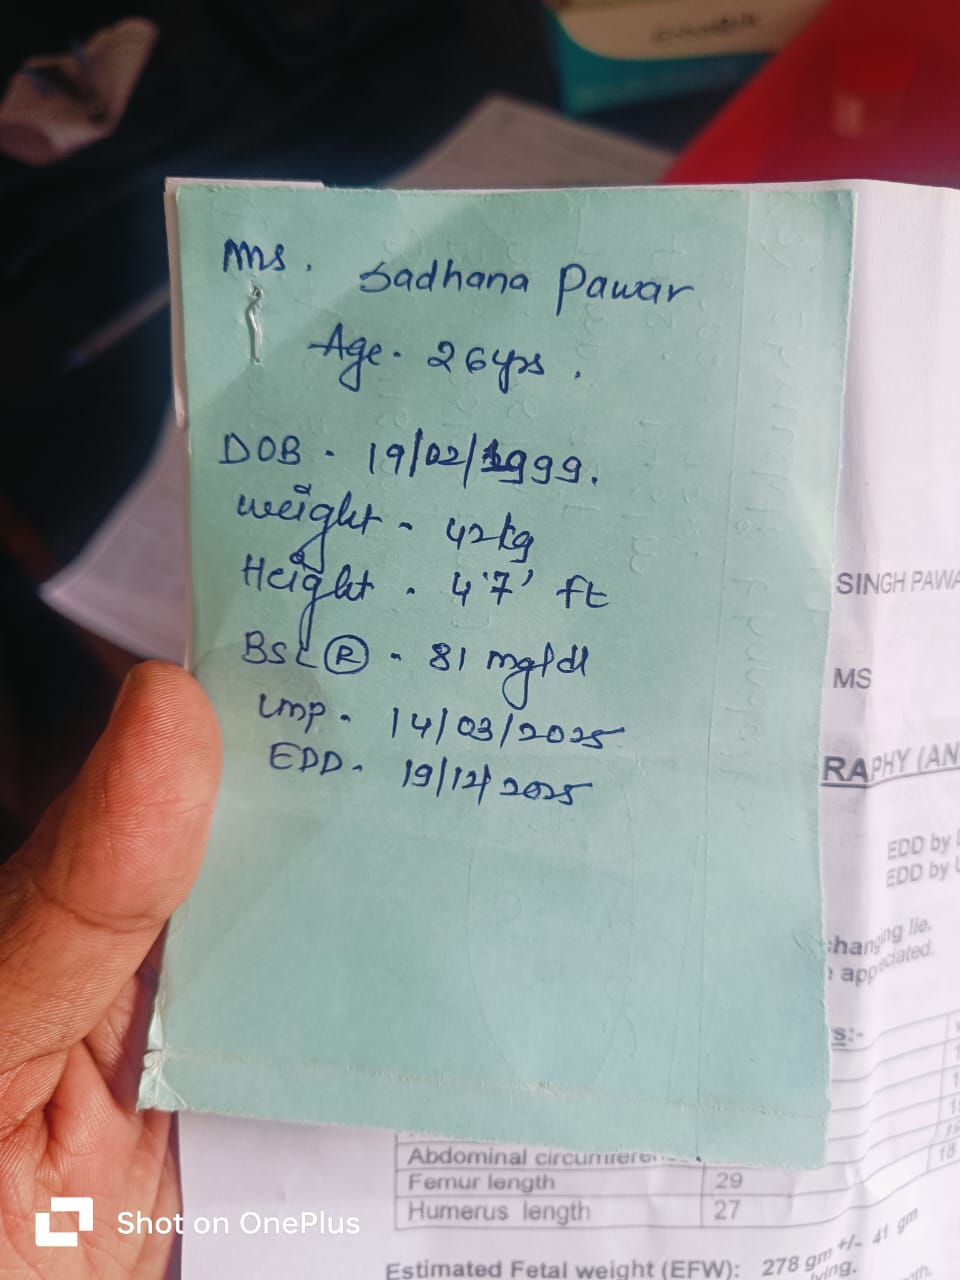 Ms. Sadhana Pawar
Age. 26yrs.
DOB - 19/02/1999.
Weight - 42kg
Height. 4'7' ft
BSL Ⓡ - 81 mg/dl
LMP. 14/03/2025
EDD. 19/12/2025
SINGH PAWA
MS
RAPHY (AN
EDD by
EDD by
changing lie.
appreciated.
s:-
Abdominal
Femur length 29
Humerus length 27
Estimated Fetal weight (EFW): 278 gm +/- 41 gm
Shot on OnePlus